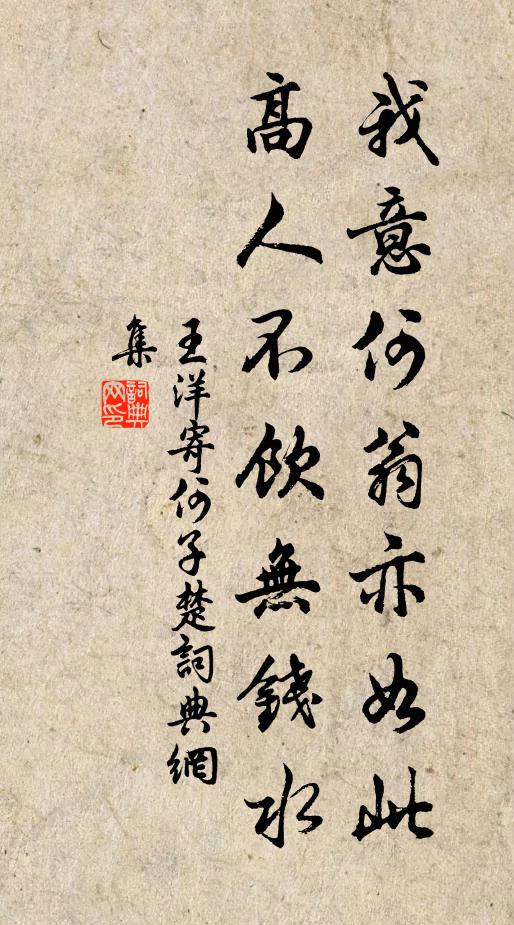 我意何翁亦如此
高人不飲無錢水
王洋寄何子楚詞典網
集
詞典
網印